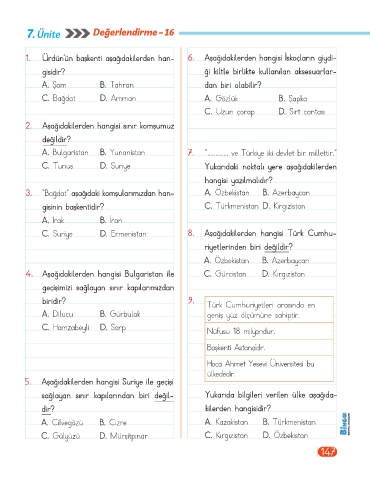 7. Ünite
Değerlendirme - 16
1. Ürdün'ün başkenti aşağıdakilerden han-
gisidir?
A. Şam B. Tahran
C. Bağdat D. Amman
2. Aşağıdakilerden hangisi sınır komşumuz
değildir?
A. Bulgaristan B. Yunanistan
C. Tunus D. Suriye
3. "Bağdat" aşağıdaki komşularımızdan han-
gisinin başkentidir?
A. Irak B. İran
C. Suriye D. Ermenistan
4. Aşağıdakilerden hangisi Bulgaristan ile
geçişimizi sağlayan sınır kapılarımızdan
biridir?
A. Dilucu B. Gürbulak
C. Hamzabeyli D. Sarp
5. Aşağıdakilerden hangisi Suriye ile geçişi
sağlayan sınır kapılarından biri değil-
dir?
A. Cilvegözü B. Cizre
C. Gülyüzü D. Mürşitpınar
6. Aşağıdakilerden hangisi İskoçların giydi-
ği kiltle birlikte kullanılan aksesuarlar-
dan biri olabilir?
A. Gözlük B. Şapka
C. Uzun çorap D. Sırt çantası
7. "............ ve Türkiye iki devlet bir millettir."
Yukarıdaki noktalı yere aşağıdakilerden
hangisi yazılmalıdır?
A. Özbekistan B. Azerbaycan
C. Türkmenistan D. Kırgızistan
8. Aşağıdakilerden hangisi Türk Cumhu-
riyetlerinden biri değildir?
A. Özbekistan B. Azerbaycan
C. Gürcistan D. Kırgızistan
9. Türk Cumhuriyetleri arasında en
geniş yüz ölçümüne sahiptir.
Nüfusu 18 milyondur.
Başkenti Astana'dır.
Hoca Ahmet Yesevi Üniversitesi bu
ülkededir.
Yukarıda bilgileri verilen ülke aşağıda-
kilerden hangisidir?
A. Kazakistan B. Türkmenistan
C. Kırgızistan D. Özbekistan
BİNGO
147